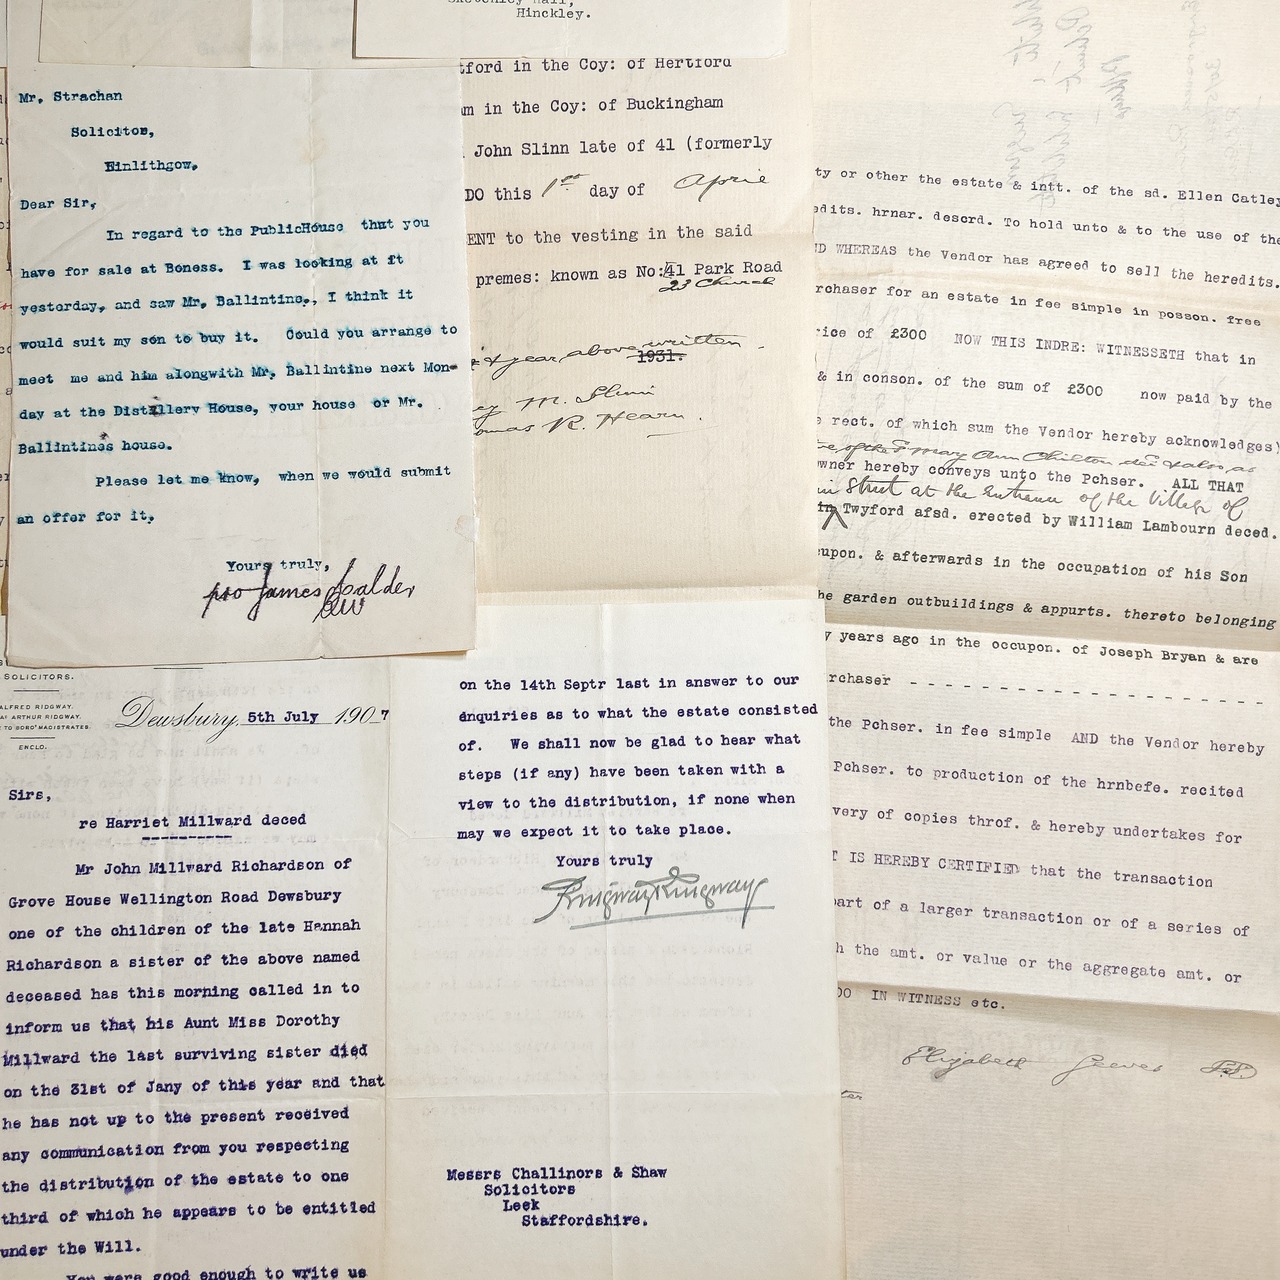 Hinckley.
Mr, Strachan
Solicitor,
Linlithgow,
Dear Sir,
In regard to the PublicHouse that you
have for sale at Boness. I was looking at ft
yesterday, and saw Mr, Ballintine,, I think it
would suit my son to buy it. Could you arrange to
meet me and him alongwith Mr, Ballintine next Mon-
day at the Distellery House, your house or Mr.
Ballintines house.
Please let me know, when we would submit
an offer for it,
Yours truly,
pro James Calder
tford in the Coy: of Hertford
m in the Coy: of Buckingham
John Slinn late of 41 (formerly
DO this 1st day of April
ENT to the vesting in the said
premes: known as No:41 Park Road
23 Church
& year above written
1931.
M. Slinn
omas R. Hearn.
ty or other the estate & intt. of the sd. Ellen Catley
edits. hrnar. descrd. To hold unto & to the use of the
ND WHEREAS the Vendor has agreed to sell the heredits.
rchaser for an estate in fee simple in posson. free
rice of £300 NOW THIS INDRE: WITNESSETH that in
& in conson. of the sum of £300 now paid by the
e rect. of which sum the Vendor hereby acknowledges)
of the Mary Ann Chilton decd as
wner hereby conveys unto the Pchser. ALL THAT
in Street at the entrance of the Village of
in Twyford afsd. erected by William Lambourn deced.
cupon. & afterwards in the occupation of his Son
he garden outbuildings & appurts. thereto belonging
y years ago in the occupon. of Joseph Bryan & are
rchaser - - - - - - - - - - - - - - - - - - - -
the Pchser. in fee simple AND the Vendor hereby
Pchser. to production of the hrnbefe. recited
very of copies throf. & hereby undertakes for
T IS HEREBY CERTIFIED that the transaction
part of a larger transaction or of a series of
h the amt. or value or the aggregate amt. or
00 IN WITNESS etc.
Elizabeth Geeves L.S.
SOLICITORS.
ALFRED RIDGWAY.
ARTHUR RIDGWAY.
TO BORO' MAGISTRATES.
ENCLO.
Dewsbury, 5th July 1907
Sirs,
re Harriet Millward deced
Mr John Millward Richardson of
Grove House Wellington Road Dewsbury
one of the children of the late Hannah
Richardson a sister of the above named
deceased has this morning called in to
inform us that his Aunt Miss Dorothy
Millward the last surviving sister died
on the 31st of Jany of this year and that
he has not up to the present received
any communication from you respecting
the distribution of the estate to one
third of which he appears to be entitled
under the Will.
You were good enough to write us
on the 14th Septr last in answer to our
enquiries as to what the estate consisted
of. We shall now be glad to hear what
steps (if any) have been taken with a
view to the distribution, if none when
may we expect it to take place.
Yours truly
Ridgway & Ridgway
Messrs Challinors & Shaw
Solicitors
Leek
Staffordshire.